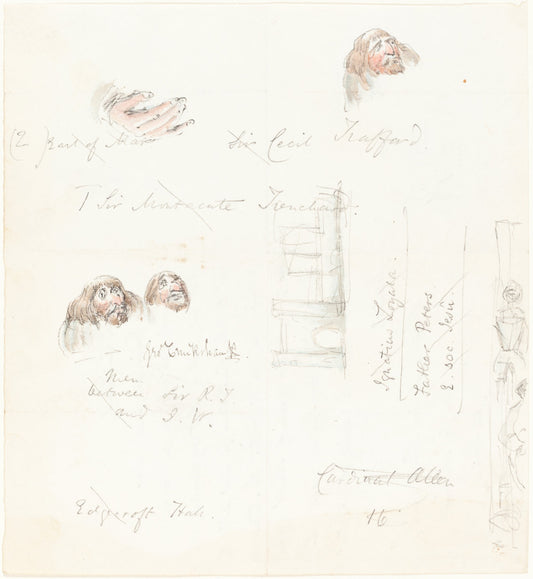 (2 Earl of Mar
Sir Cecil Trafford.
T Sir Montacute Trencham.
Ignatius Loyola.
Father Peters
2. soc Jesu
Geo Cruikshank.
Men
between Sir R. T
and I. W.
Cardinal Allen
16
Edgecroft Hall.